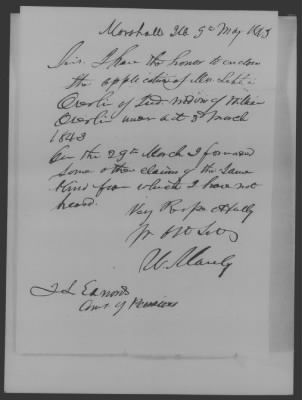 Marshall Ills 9th May 1843
Sir. I have the honor to enclose
the application of Mrs.
Overlin of widow of William
Overlin under act 3d March
1843
On the 29th March I forwarded
some other claims of the same
kind from which I have not
heard.
Very Respectfully
Yr Obt Sevt
J L Edwards
Comr of Pensions